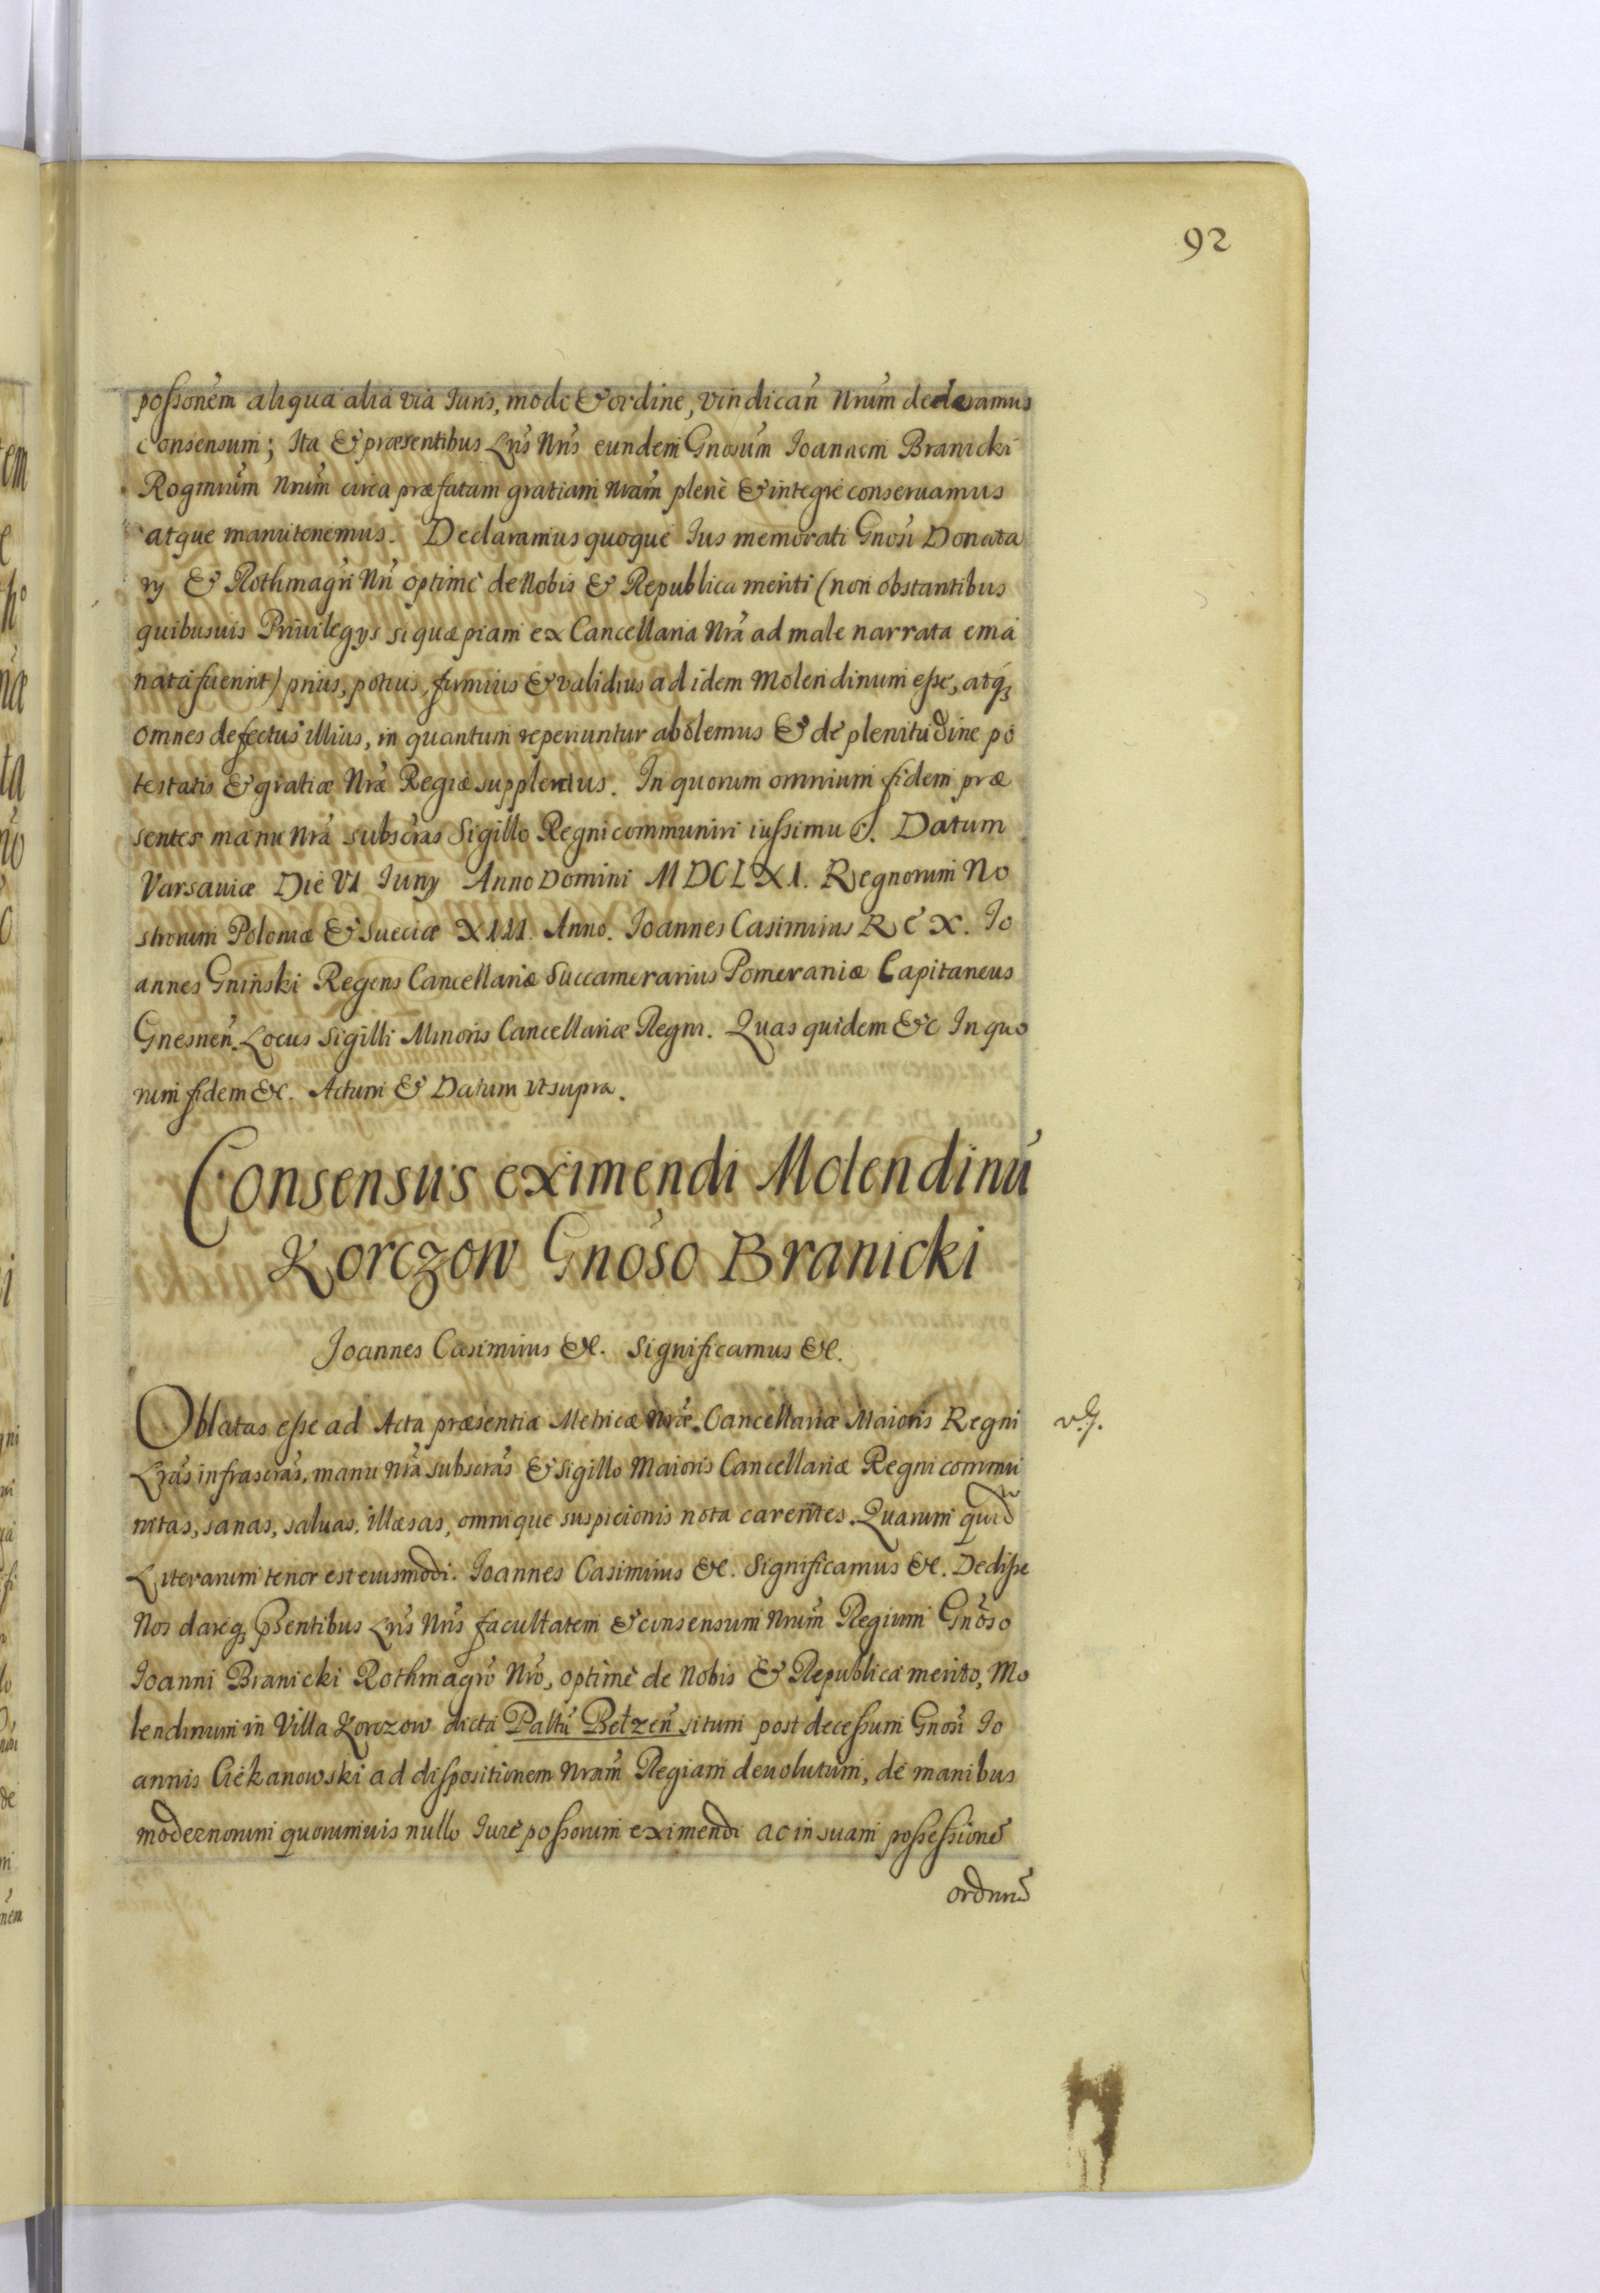 92
possonem̃ aliqua alia via Iuris, modo & ordine, vindicañ Nrum̃ dederamus
Consensum; Ita & præsentibus Lris̃ Nris̃ eundem Gnosum̃ Ioannem Branicki
Rogmrum̃ Nrum̃ circa præfatam gratiam Nram̃ plenè & integrè conseruamus
atque manutenemus. Declaramus quoque Ius memorati Gnosi̇̃ Donata
rij & Rothmagri̇̃ Nri̇̃ optimè de Nobis & Republica meriti (non obstantibus
quibusuis Priuilegijs si quæpiam ex Cancellaria Nrã ad male narrata ema
nata fuerint) prius, potius, firmius & validius ad idem Molendinum eße, atq́ꝫ
omnes defectus illius, in quantum reperiuntur abolemus & de plenitudine po
testatis & gratiæ Nræ̃ Regiæ supplemus. In quorum omnium fidem præ
sentes manu Nrã subscras̃ Sigillo Regni communiri iußimus. Datum
Varsauiæ Die VI Iunij Anno Domini MDCLXI. Regnorum No
strorum Poloniæ & Sueciæ XIII. Anno. Ioannes Casimirus Rex. Io
annes Gniński Regens Cancellariæ Succamerarius Pomeraniæ Capitaneus
Gnesneñ. Locus Sigilli Minoris Cancellariæ Regni. Quas quidem &c In quo
rum fidem &c. Actum & Datum vt supra.
Consensus eximendi Molendinũ
Korczow Gnõso Branicki
Joannes Casimirus &c. Significamus &c.
Oblatas eße ad Acta præsentia Metricæ Nræ̃ Cancellariæ Maioris Regni
Lras̃ infrascras̃, manu Nrã subscras̃ & Sigillo Maioris Cancellariæ Regni commu
nitas, sanas, saluas, illæsas, omnique suspicionis nota carentes. Quarum quid̃
Literarum tenor est eiusmodi. Ioannes Casimirus &c. Significamus &c. Dediße
Nos dareqꝫ pñsentibus Lris̃ Nris̃ facultatem & consensum Nrum̃ Regium Gnõso
Ioanni Branicki Rothmagrõ Nrõ, optimè de Nobis & Republica merito, Mo
lendinum in Villa Korczow dicta Palttũ Bełzeñ situm post deceßum Gnosi̇̃ Io
annis Ciekanowski ad dißpositionem Nram̃ Regiam deuolutum, de manibus
modernorum quorumuis nullo Iure poßorum eximendi ac in suam poßeßionẽ
ordinẽ